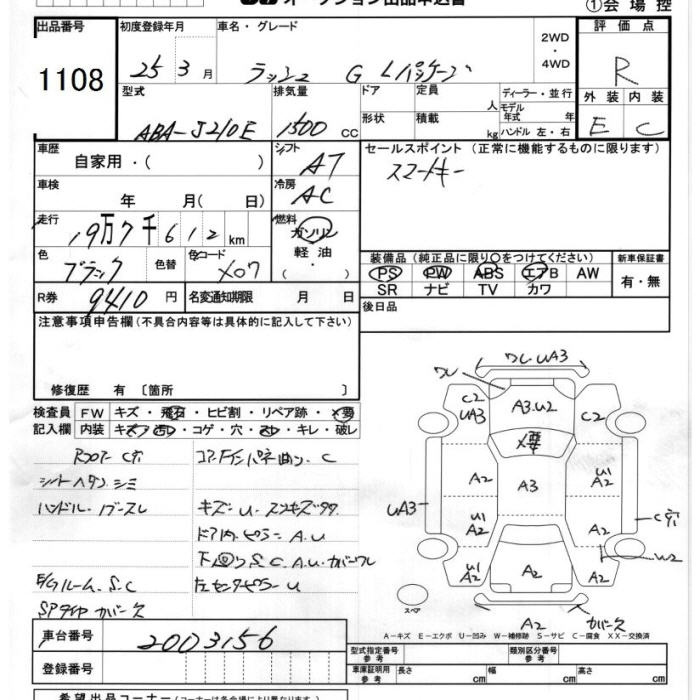 オークション出品申込書
①会場控
出品番号 初度登録年月 車名・グレード 2WD・4WD 評価点
1108 25 3月 ラッシュ G Lパッケージ R
型式 排気量 ドア 定員 人 ディーラー・並行 外装 内装
ABA-J210E 1500 CC 形状 積載 kg モデル年式 年 ハンドル 左・右 E C
車歴 自家用・( ) シフト AT セールスポイント (正常に機能するものに限ります)
スマートキー
車検 年 月(日) 冷房 AC
走行 19万7千612 km 燃料 ガソリン 軽油・( )
色 ブラック 色替 色コード X07
装備品 (純正品に限り○をつけてください) 新車保証書
PS PW ABS エアB AW 有・無
SR ナビ TV カワ
R券 9410円 名変通知期限 月 日 後日品
注意事項申告欄 (不具合内容等は具体的に記入して下さい)
修復歴 有 〔箇所 〕
検査員 FW キズ・飛石・ヒビ割・リペア跡・✕要
記入欄 内装 キズ コゲ・穴・ キレ・破レ
ワレ・UA3
ワレ
C2
UA3
A3.U2
C2
✕要
A2
A3
U1
A2
UA3
U1
A2
A2
C穴
U1
A2
A2
A2
U2
スペア
A2
カバー欠
シートヘタレ シミ
ハンドル・ブースレ
キズー U・スンキズタタ
ドア内・ピラー A.U
下回りS.C.A.U.カバーワレ
E/Gルーム.S.C 左センターピラー U
SPタイヤ カバー欠
A-キズ E-エクボ U-凹み W-補修跡 S-サビ C-腐食 XX-交換済
車台番号 2003156
登録番号
型式指定番号 参考 類別区分番号 参考
車庫証明用 参考 長さ cm 幅 cm 高さ cm
希望出品コーナー (コーナーは各会場により異なります)